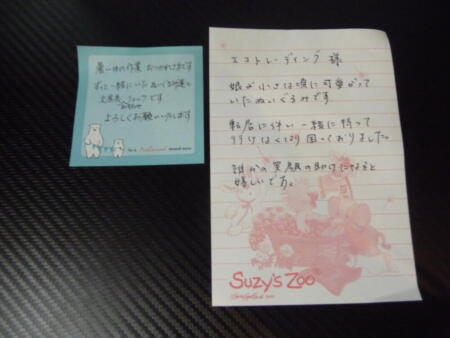 暑い中の作業 おつかれさまです
ずっと一緒にいた ぬいぐるみ達と
文房具、リュックです
よろしくお願いいたします
エコトレーディング 様
娘が小さい頃に可愛がって
いたぬいぐるみです
転居に伴い一緒に持って
行けなくなり困っておりました。
誰かの笑顔の助けになると
嬉しいです。
SUZY'S ZOO